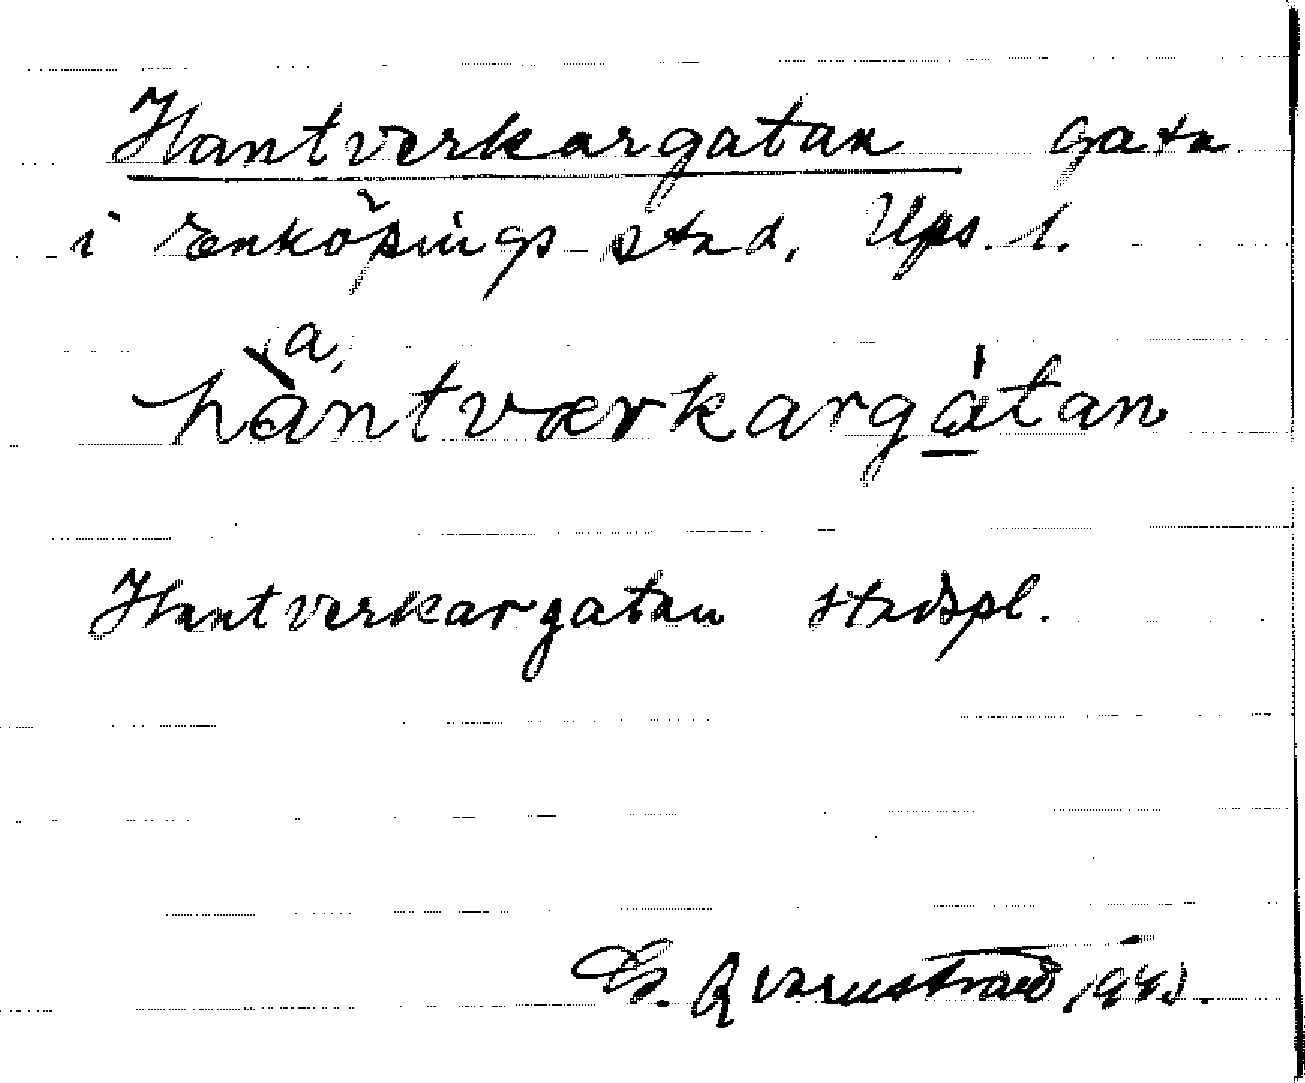 Hantverkargatan gata
i Enköpings stad, Ups. l.
a
hàntværkargátan
Hantverkargatan stadspl.
Qvarnstrand